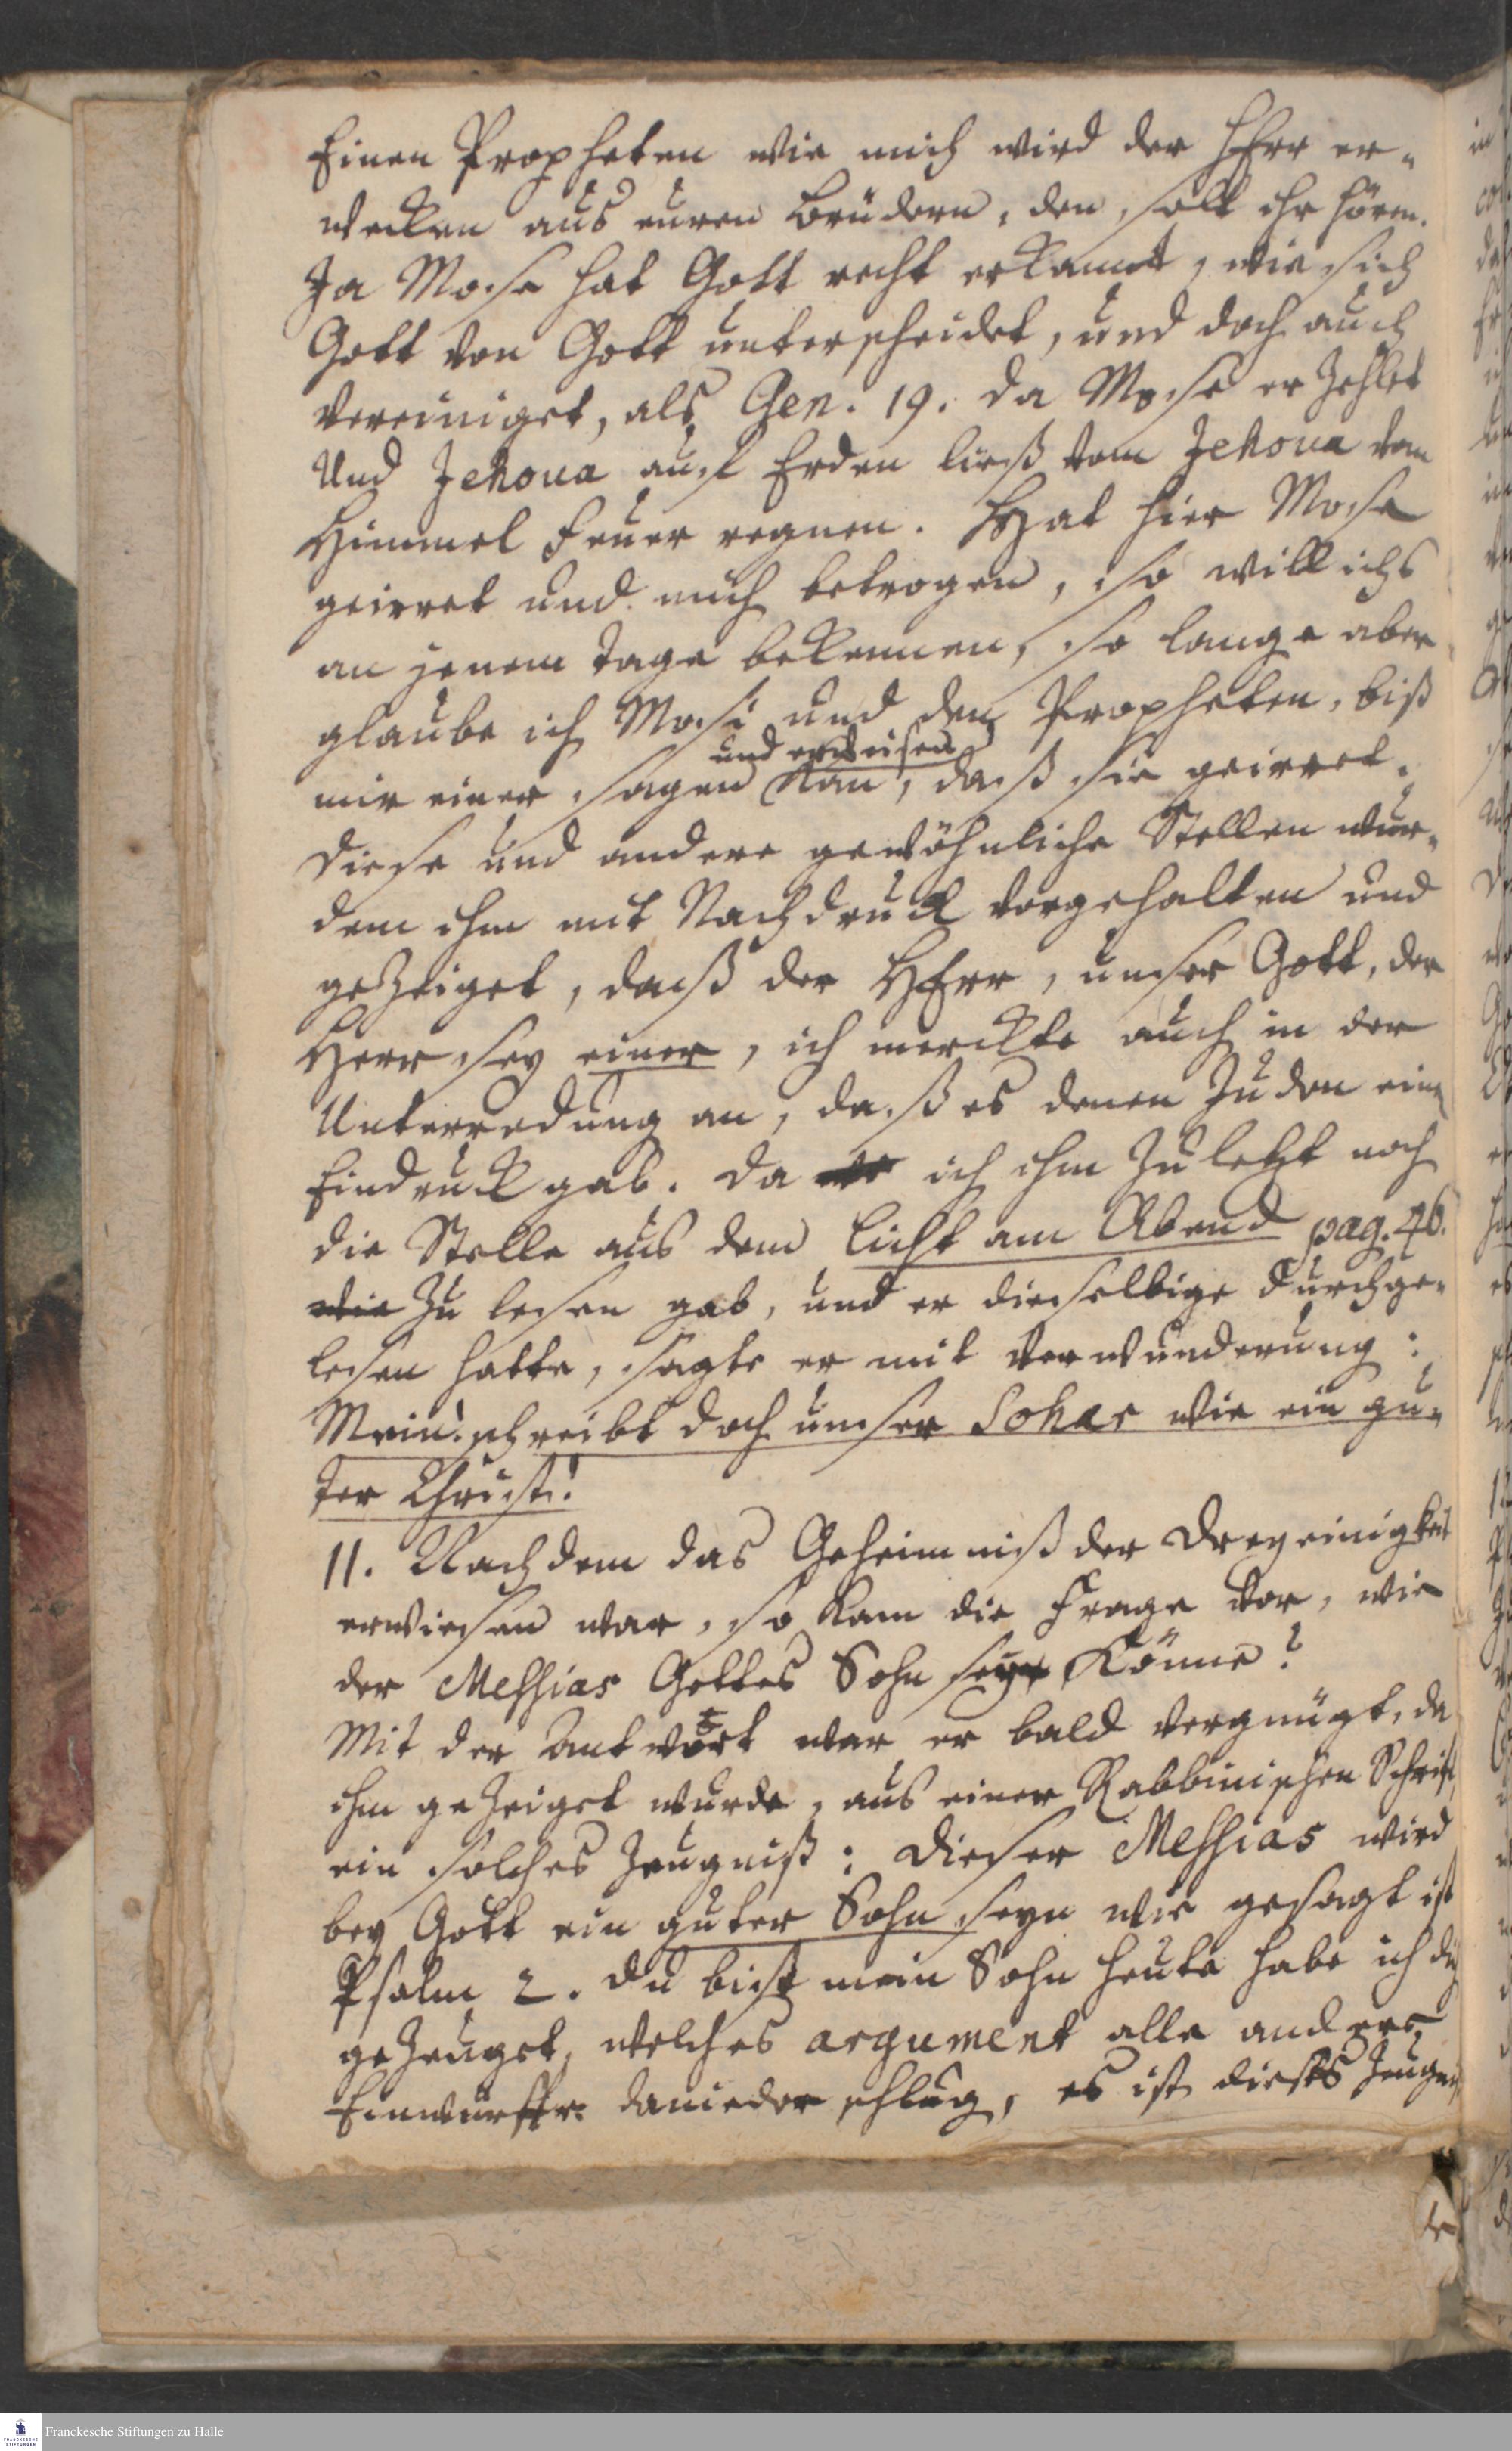 Einen Propheten wie mich wird der HErr er-
wecken aus euren Brüdern, den solt ihr hören.
Ja Mose hat Gott recht erkannt, wie sich
Gott von Gott unterscheidet, und doch auch
vereiniget, als Gen. 19. da Mose erzehlet
Und Jehova auf Erden ließ vom Jehova vom
Himmel Feuer regnen. Hat hier Mose
geirret und mich betrogen, so will ichs
an jenem Tage bekennen, so lange aber
glaube ich Mosi und den Propheten, biß
und erweisen
mir einer sagen kan, daß sie geirret.
Diese und andere gewöhnliche Stellen wur-
den ihm mit Nachdruck vorgehalten und
gezeiget, daß der HErr, unser Gott, der
Herr sey einer, ich merckte auch in der
Unterredung an, daß es denen Juden ein
Eindruck gab. Da ich ihm zuletzt noch
die Stelle aus dem Licht am Abend pag. 46.
die zu lesen gab, und er dieselbige durchge-
lesen hatte, sagte er mit Verwunderung:
Mein! schreibt doch unser Sohar wie ein gu-
ter Christ!
11. Nachdem das Geheimniß der Dreyeinigkeit
erwiesen war, so kam die Frage vor, wie
der Messias Gottes Sohn seyn könne?
Mit der Antwort war er bald vergnügt, da
ihm gezeiget wurde, aus einer Rabbinischen Schrift
ein solches Zeugniß: Dieser Messias wird
bey Gott ein guter Sohn seyn wie gesagt ist
Psalm 2. Du bist mein Sohn heute habe ich dich
gezeuget, welches argument alle andere
Einwürffe darnieder schlug, es ist dieses Zeugniß
Franckesche Stiftungen zu Halle